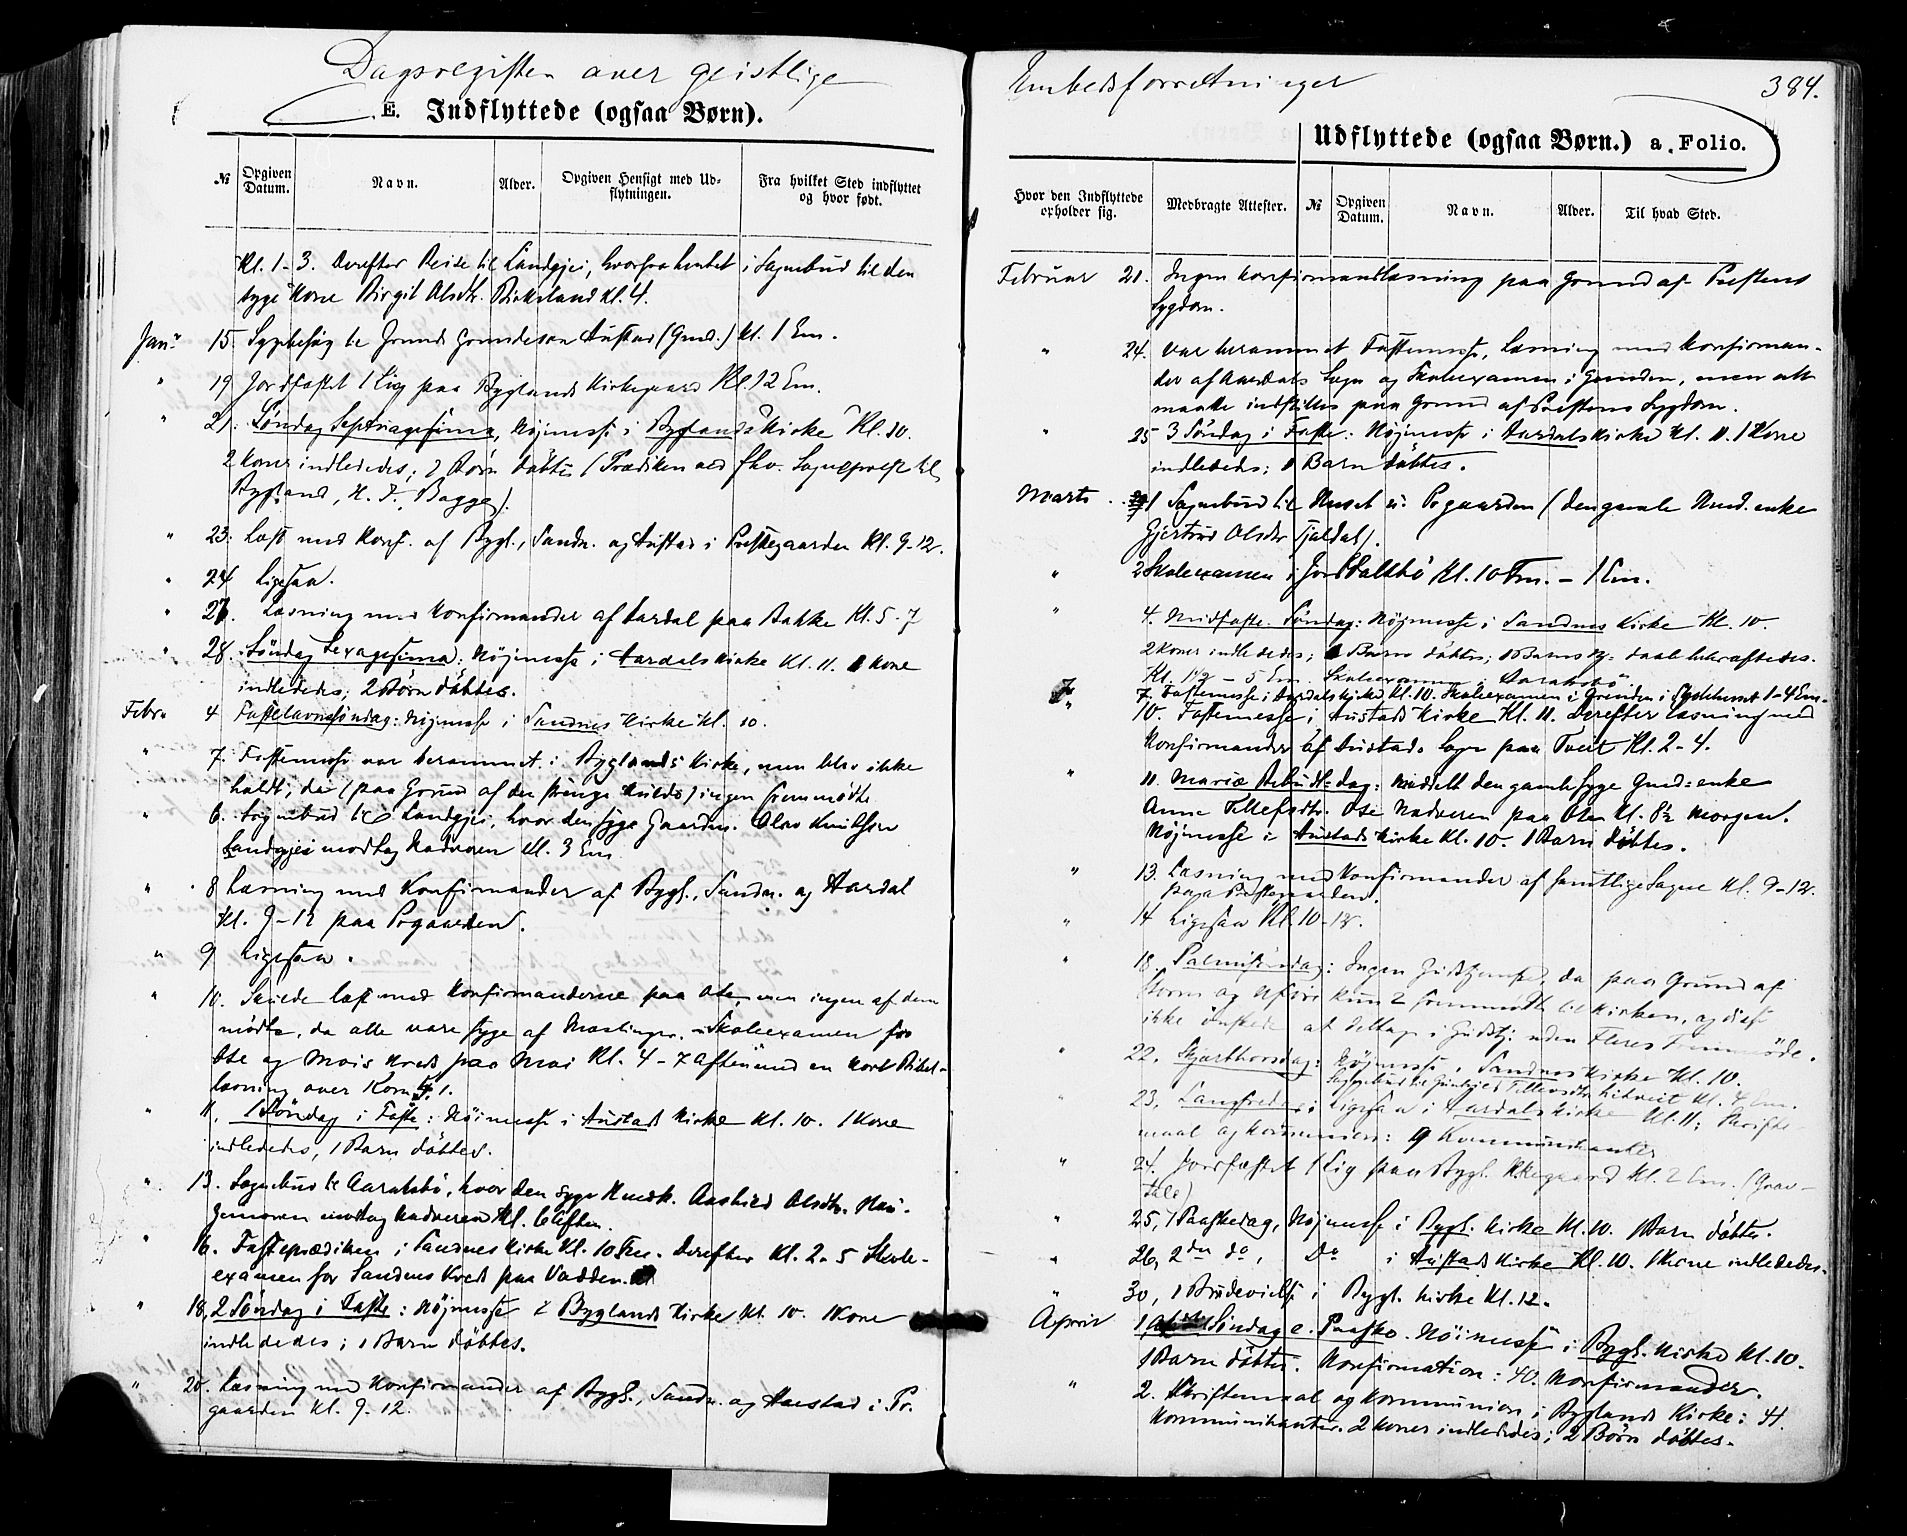 Dagsregister over geistlige
E. Indflyttede (ogsaa Børn).
№ Opgiven Datum. Navn. Alder. Opgiven Hensigt med Udflytningen. Fra hvilket Sted indflyttet og hvor født.
Kl. 1-3. Derefter Reise til Landgjei, hvorfra hentet i Sognebud til den
syge Kone Birgit Olsdtr. Birkeland Kl. 4.
Jan. 15. Sygebesøg hos Gunder Gundersen Austad (Gmd.) Kl. 1 Em.
" 19 Jordfæstet 1 Lig paa Byglands Kirkegaard Kl. 12 Em.
" 21. Søndag Septuagesima, Højmesse i Byglands Kirke Kl. 10.
2 Koner indlededes; 2 Børn døbtes (Prædiken ved fhv. Sognepræst til
Bygland, H. J. Bagge).
" 23. Læst med Konf. af Bygl., Sandn. og Austad i Præstegaarden Kl. 9-12.
" 24 Ligesaa.
" 27. Læsning med Konfirmander af Aardal paa Bakke Kl. 5-7
" 28. Søndag Sexagesima: Højmesse i Aardals Kirke Kl. 11. 1 Kone
indlededes; 2 Børn døbtes.
Febr. 4 Fastelavnssøndag: Højmesse i Sandnes Kirke Kl. 10.
" 7. Fastemesse var berammet i Byglands Kirke, men blev ikke
holdt, da (paa Grund af den strenge Kulde) ingen fremmødte.
" 6. Sognebud til Landgjei, hvor den syge Gaardm. Olav Knudsen
Landgjei modtog Nadveren Kl. 3 Em.
" 8 Læsning med Konfirmander af Bygl., Sandn. og Aardal
Kl. 9-12 paa Prgaarden.
" 9 Ligesaa.
" 10. Skulde læst med Konfirmanderne paa Ose, men ingen af dem
mødte, da alle vare syge af Mæslinger. - Skoleexamen for
Ose og Mois Kreds paa Moi Kl. 4-7 Aften med en kort Bibel-
læsning over Rom. 5. 1.
" 11. 1 Søndag i Faste: Højmesse i Austads Kirke Kl. 10. 1 Kone
indlededes, 1 Barn døbtes.
" 13. Sognebud til Aaraksbø, hvor den syge Huusk. Aasbjørd Olsdtr. Hau-
gemoren modtog Nadveren Kl. 6 Aften.
" 16. Fasteprædiken i Sandnes Kirke Kl. 10 Fm. Derefter Kl. 2-5 Skole-
examen for Sandnes Kreds paa Vadden.
" 18. 2 Søndag i Faste: Højmesse i Byglands Kirke Kl. 10. 1 Kone
indlededes; 1 Barn døbtes.
" 20. Læsning med Konfirmander af Bygl., Sandn. og Austad i Pr.
gaarden Kl. 9-12.
Embedsforretninger
384.
Udflyttede (ogsaa Børn.) a. Folio.
Hvor den Indflyttede opholder sig. Medbragte Attester. № Opgiven Datum. Navn. Alder. Til hvad Sted.
Februar 21. Ingen Konfirmantlæsning paa Grund af Præstens
Sygdom.
" 24. var berammet Fastemesse, Læsning med Konfirman-
der af Aardals Sogn og Skoleexamen i Grenden, men alt
maatte indstilles paa Grund af Præstens Sygdom.
" 25 3 Søndag i Faste: Højmesse i Aardals Kirke Kl. 11. 1 Kone
indlededes; 1 Barn døbtes.
Marts 1 Sognebud til Huset u. Prgaarden (den gamle Huusm. enke
Gjertrud Olsdtr Fjaldal).
" 2 Skoleexamen i Jordalsbø Kl. 10 Fm. - 1 Em.
" 4. Midfaste Søndag: Højmesse i Sandnes Kirke Kl. 10.
2 Koner indlededes; 1 Barn døbtes; 1 Barns Hj. daab bekræftedes.
Kl. 1½ - 5 Em. Skoleexamen i Aaraksbø.
" 7. Fastemesse i Aardals Kirke Kl. 10. Skoleexamen i Grenden i Skolehuset 1-4 Em.
10. Fastemesse i Austads Kirke Kl. 11. Derefter Læsning med
Konfirmander af Austads Sogn paa Tveit Kl. 2-4.
" 11. Mariæ Bebudls dag: Meddelt den gamle syge Gmd: enke
Anne Tellefsdtr. Ose Nadveren paa Ose Kl. 8½ Morgen.
Højmesse i Austads Kirke Kl. 10. 1 Barn døbtes.
" 13. Læsning med Konfirmander af samtlige Sogne Kl. 9-12.
paa Præstegaarden.
" 14 Ligesaa Kl. 10-12.
" 18. Palmesøndag: Ingen Gudstjeneste, da paa Grund af
Storm og Uføre kun 2 fremmødte til Kirken, og disse
ikke ønskede at deltage i Gudstj. uden Fleres Fremmøde.
" 22. Skjærthorsdag: Højmesse i Sandnes Kirke Kl. 10.
Sognebud til Gunhjerd Tellevsdtr. Litveit Kl. 4 Em.
23. Langfredag: Ligesaa i Aardals Kirke Kl. 11; Skrifte-
maal og Kommunion: 9 Kommunikanter
" 24. Jordfæstet 1 Lig paa Bygl. Kirkegaard Kl. 2 Em. (Grav-
tale)
" 25, 1 Paaskedag, Højmesse i Bygl. Kirke Kl. 10. 1 Barn døbtes.
" 26, 2den do, Do i Austads Kirke Kl. 10. 1 Kone indlededes.
" 30, 1 Brudevielse i Bygl. Kirke Kl. 12.
April 1, Søndag e. Paaske. Højmesse i Bygl. Kirke Kl. 10.
1 Barn døbtes. Konfirmation: 40. Konfirmander.
" 2. Skriftemaal og Kommunion i Byglands Kirke: 41
Kommunikanter. 2 Koner indlededes; 2 Børn døbtes.